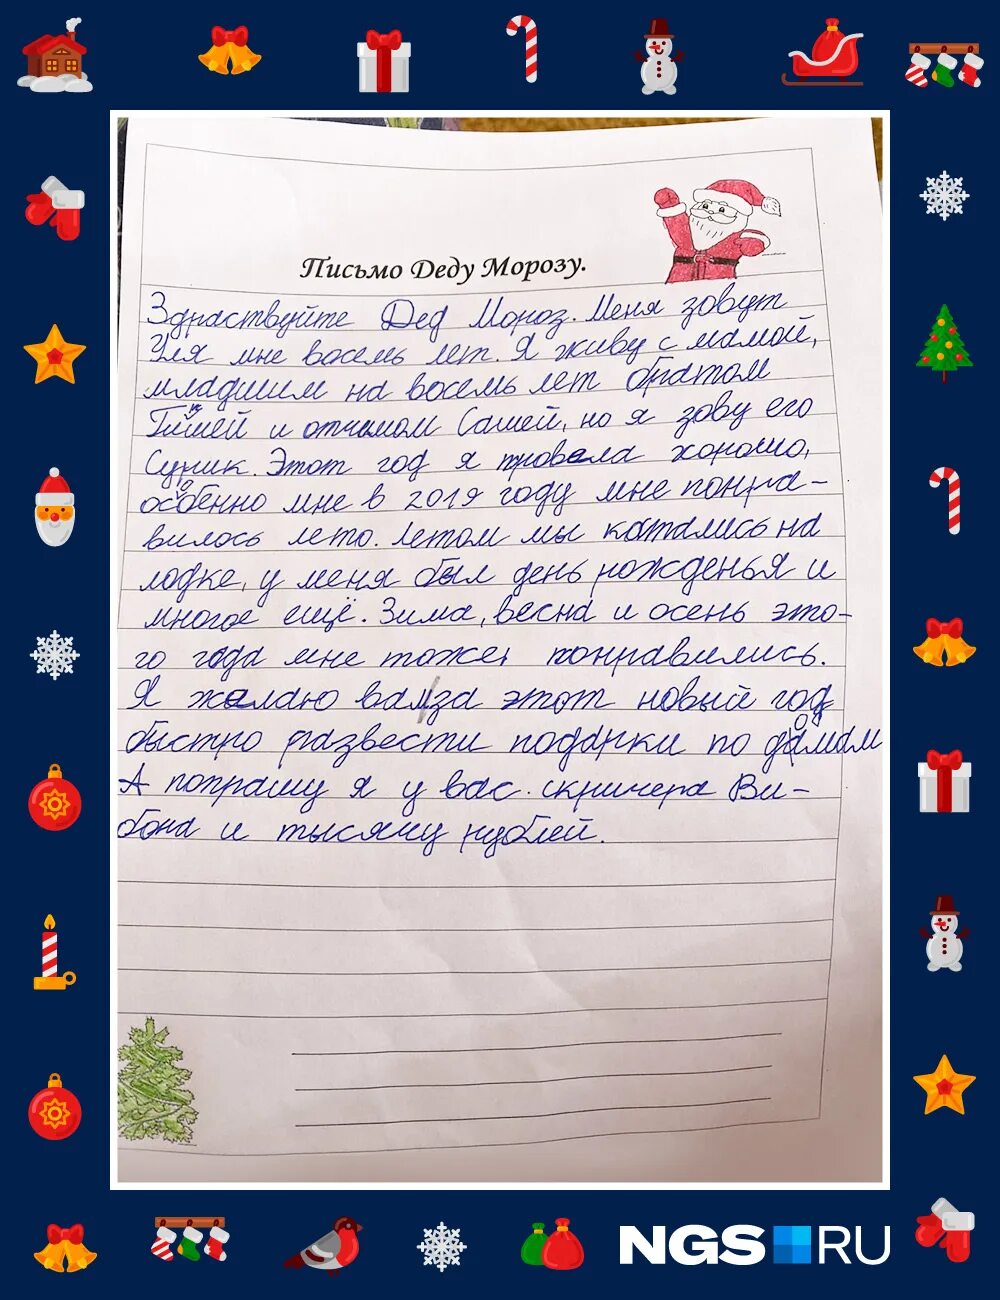 Письмо Деду Морозу.
Здраствуйте Дед Мороз. Меня зовут
Уля мне восемь лет. Я живу с мамой,
младшим на восемь лет братом
Тишей и отчимом Сашей, но я зову его
Сурик. Этот год я провела хорошо,
особенно мне в 2019 году мне понра-
вилось лето. Летом мы катались на
лодке, у меня был день рожденья и
многое ещё. Зима, весна и осень это-
го года мне тоже, понравились.
Я желаю вам за этот новый год
быстро развести подарки по домам
А попрашу я у вас скричера Ви-
бона и тысячу рублей.
NGS RU